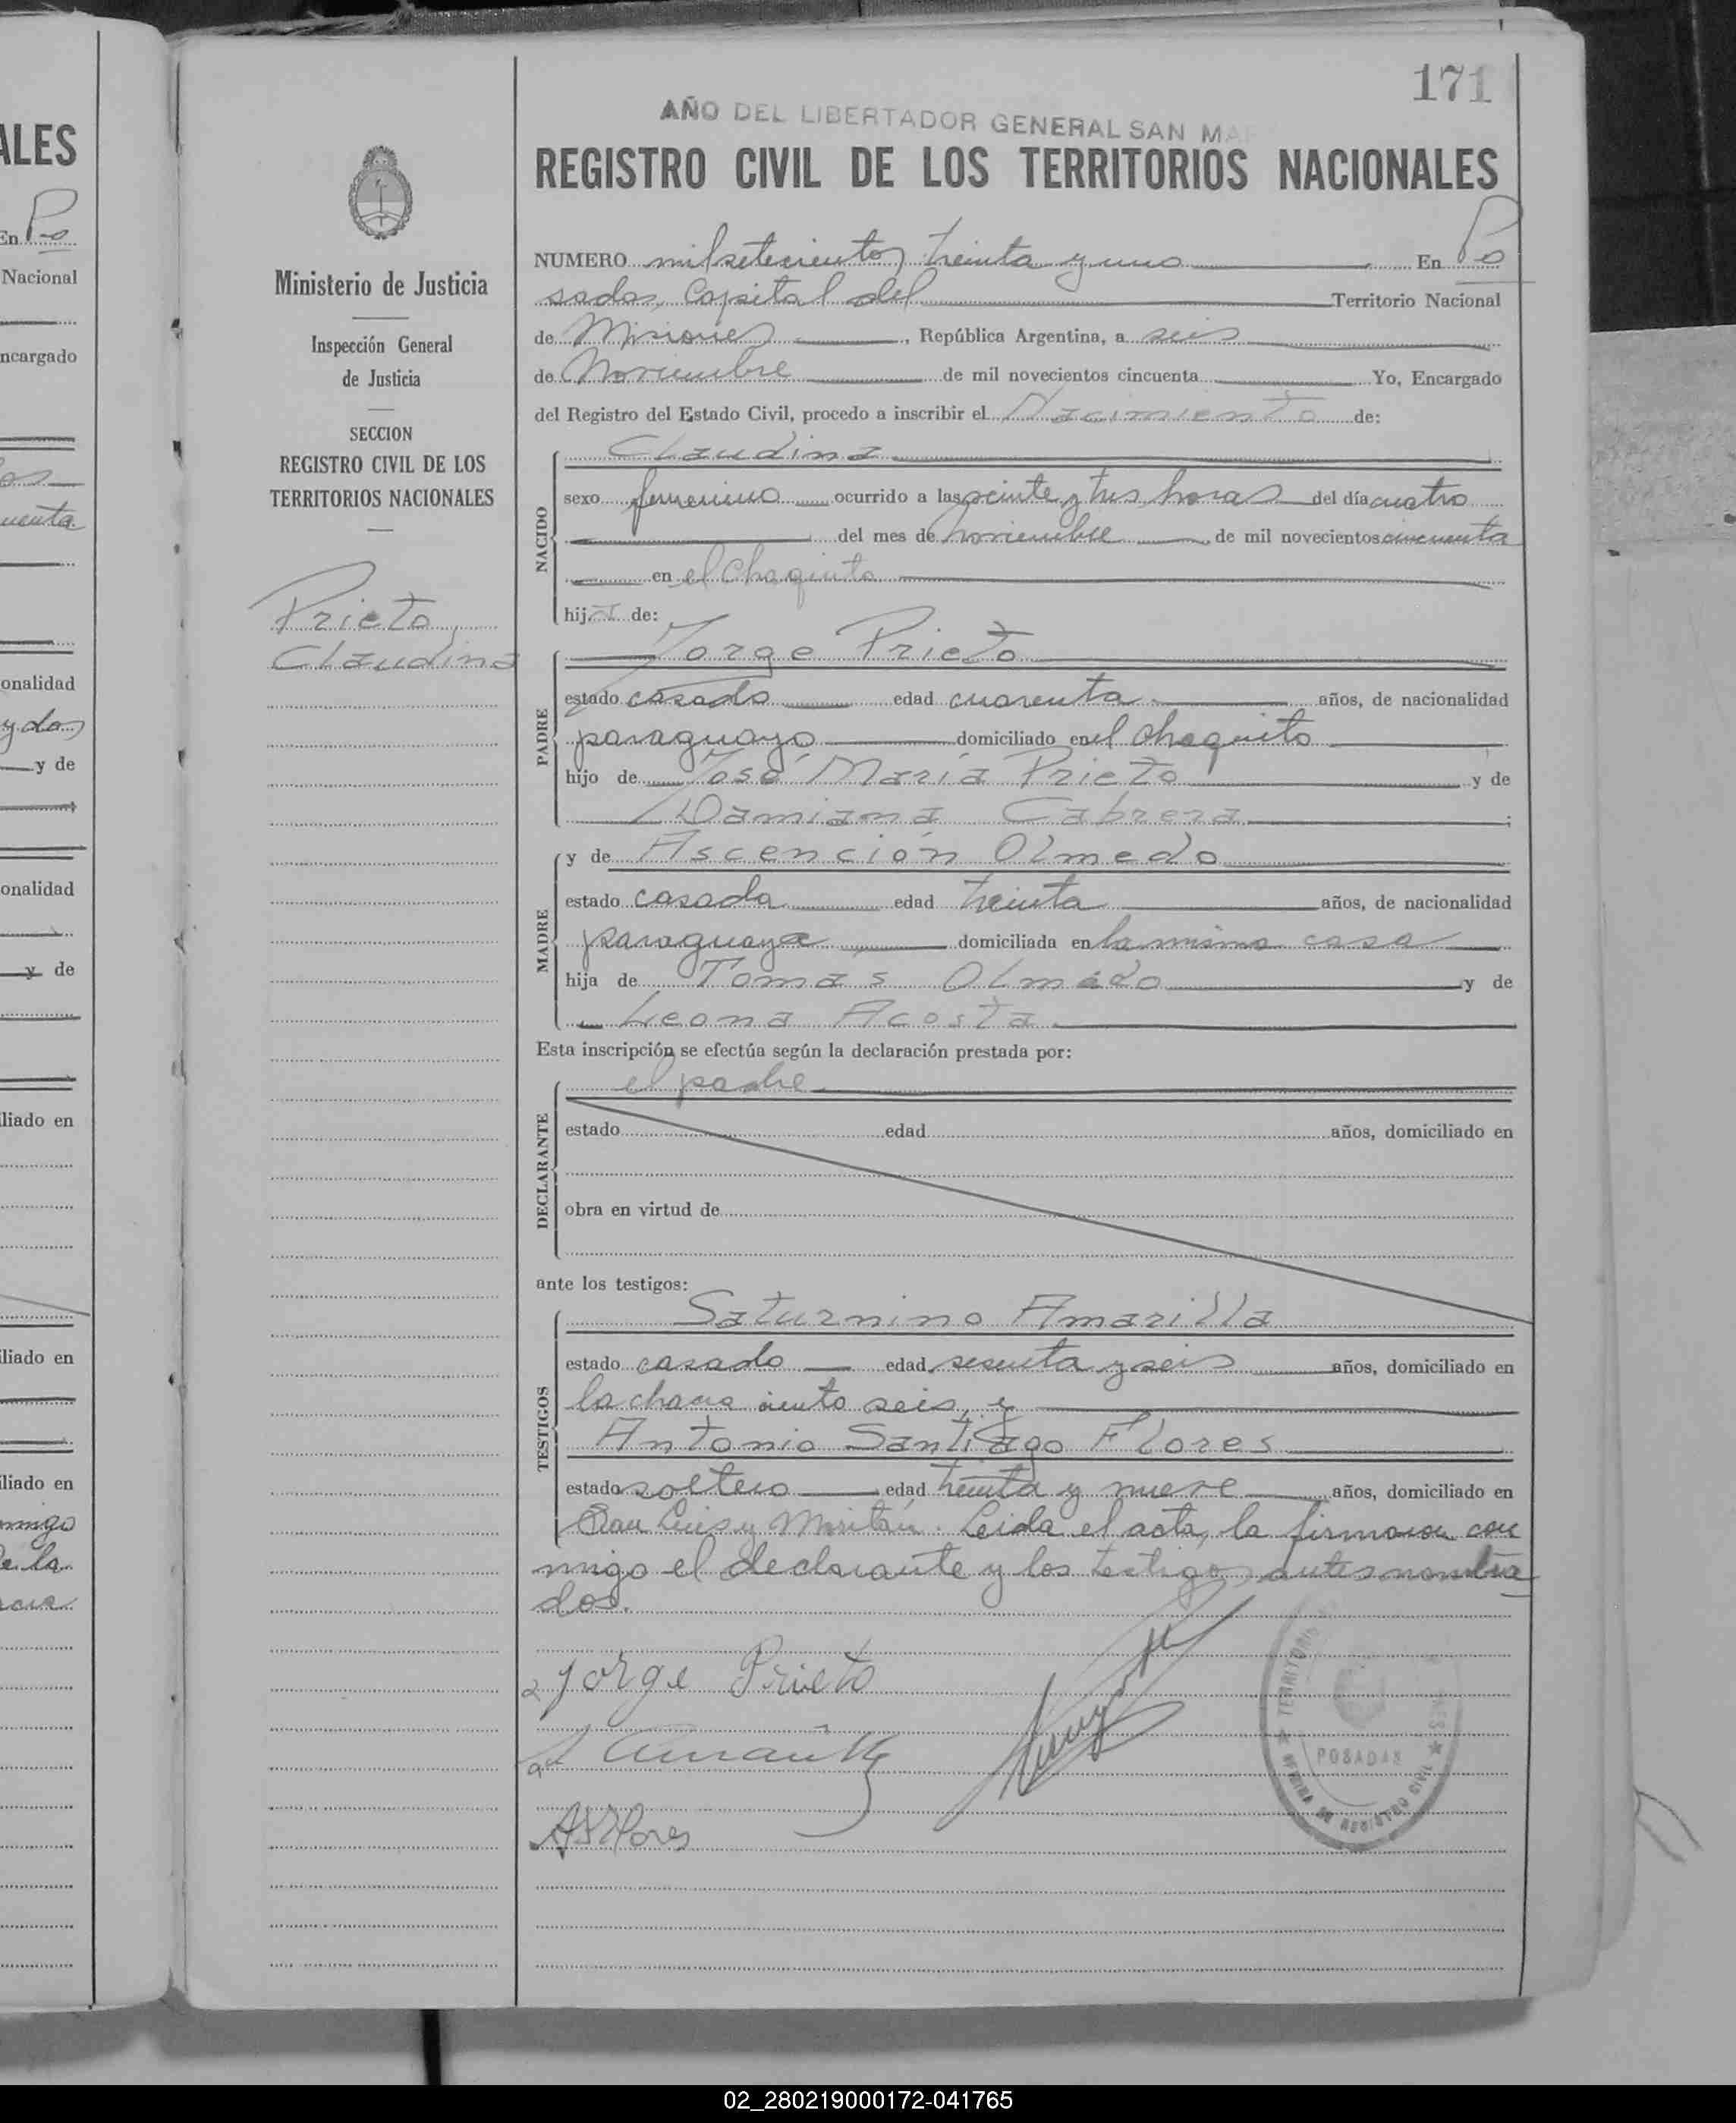 171
AÑO DEL LIBERTADOR GENERAL SAN MA
REGISTRO CIVIL DE LOS TERRITORIOS NACIONALES
Ministerio de Justicia
Inspección General
de Justicia
SECCION
REGISTRO CIVIL DE LOS
TERRITORIOS NACIONALES
Prieto,
Claudina
NUMERO mil setecientos treinta y uno En Po
sadas, Capital del Territorio Nacional
de Misiones, República Argentina, a seis
de Noviembre de mil novecientos cincuenta Yo, Encargado
del Registro del Estado Civil, procedo a inscribir el Nacimiento de:
Claudina
NACIDO
sexo femenino ocurrido a las veinte y tres horas del día cuatro
del mes de noviembre de mil novecientos cincuenta
en el Chaquito
hija de:
PADRE
Jorge Prieto
estado casado edad cuarenta años, de nacionalidad
paraguayo domiciliado en el chaquito
hijo de José María Prieto y de
Damiana Cabrera ;
MADRE
y de Ascención Olmedo
estado casada edad treinta años, de nacionalidad
paraguaya domiciliada en la misma casa
hija de Tomas Olmedo y de
Leona Acosta
Esta inscripción se efectúa según la declaración prestada por:
DECLARANTE
el padre
estado edad años, domiciliado en
obra en virtud de
ante los testigos:
TESTIGOS
Saturnino Amarilla
estado casado edad sesenta y seis años, domiciliado en
la chacra ciento seis, y
Antonio Santiago Flores
estado soltero edad treinta y nueve años, domiciliado en
San Luis y Moritán. Leida el acta, la firmaron con
migo el declarante y los testigos antes nombra
dos.
Jorge Prieto
Amarilla
ASFlores
TERRITORIOS
POSADAS
OFICINA DE REGISTRO CIVIL
ALES
En Po
Nacional
ncargado
uenta
onalidad
y dos
y de
onalidad
y de
iliado en
iliado en
iliado en
migo
e la
02_280219000172-041765